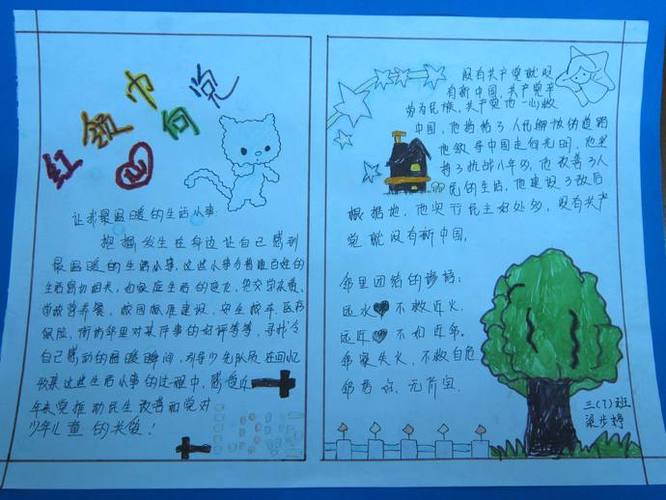 红领巾心向党
让我最温暖的生活小事:
把握发生在身边让自己感到
最温暖的生活小事,这些小事与普通百姓的
生活密切相关,如家庭生活的变化,
营养餐,校园标准建设,安全校车,医疗
保险,街坊邻里对某件事的好评等等,寻找令
自己感动的温暖瞬间,引导少先队员在回忆
收集这些生活小事的过程中,感受近
年来党推动民生改善和党对
少年儿童的关爱!
没有共产党就没
有新中国,共产党辛
劳为民族,共产党他一心救
中国,他指给了人民解放的道路
他领导中国走向光明,他坚
持了抗战八年多,他改善了人
民的生活,他建设了敌后
根据地,他实行民主好处多,没有共产
党就没有新中国。
邻里团结的谚语:
远水 不救近火。
远近 不如近邻。
邻家失火,不救自危
三(7)班